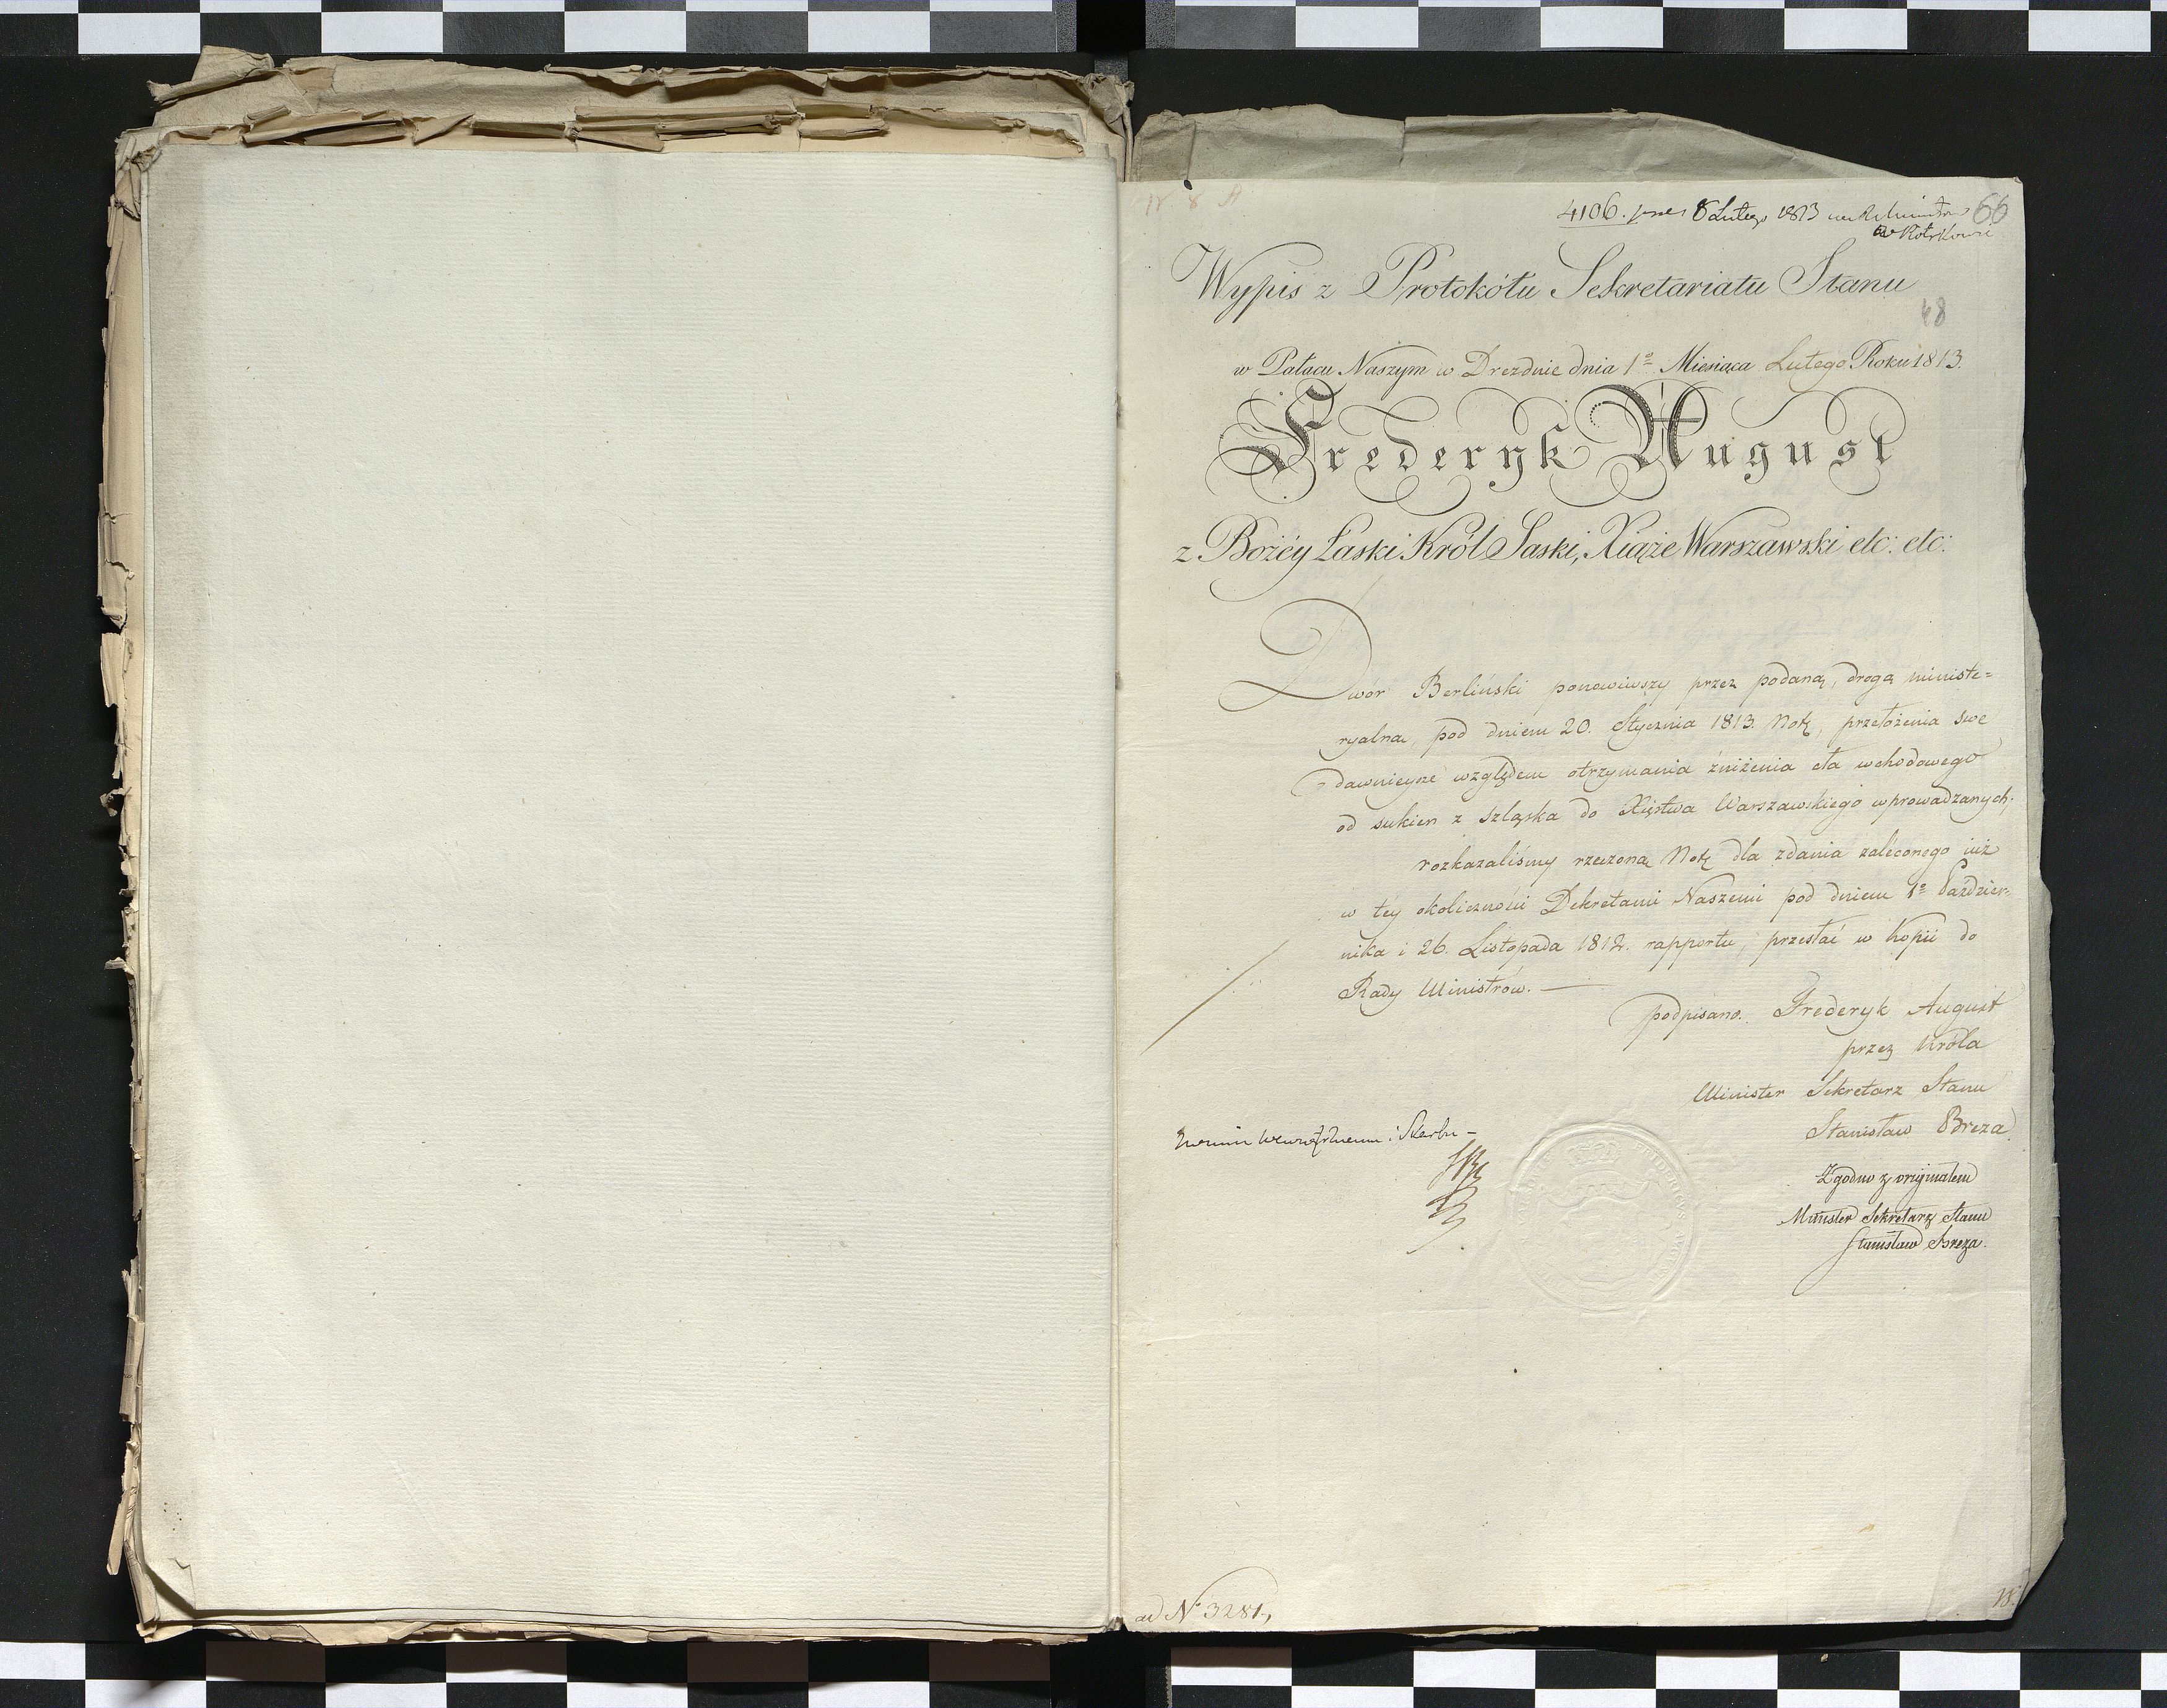 Nr. 8 A
4106. prae: 8 Lutego 1813 66
w Piotrkowie
Wypis z Protokółu Sekretariatu Stanu
48
w Pałacu Naszym w Dreznie dnia 1o Miesiąca Lutego Roku 1813.
Frederyk August
z Bożéy Łaski Król Saski, Xiąże Warszawski etc: etc:
Dwór Berliński ponowiwszy przez podaną, drogą ministe=
ryalną, pod dniem 20. Stycznia 1813. Notę, przełożenia swe
dawnieysze względem otrzymania zniżenia cła wchodowego
od sukien z Szląska do Xięstwa Warszawskiego wprowadzanych.
rozkazaliśmy rzeczoną Notę dla zdania zaleconego iuż
w tey okoliczności Dekretami Naszemi pod dniem 1o Paździer=
nika i 26. Listopada 1812. rapportu, przesłać w kopii do
Rady Ministrów. —
podpisano. Frederyk August
przez Króla
Minister Sekretarz Stanu
Stanisław Breza.
Wewnętrznemu i Skarbu –
Zgodno z oryginałem
Minister Sekretarz Stanu
Stanisław Breza.
ad No 3281.,